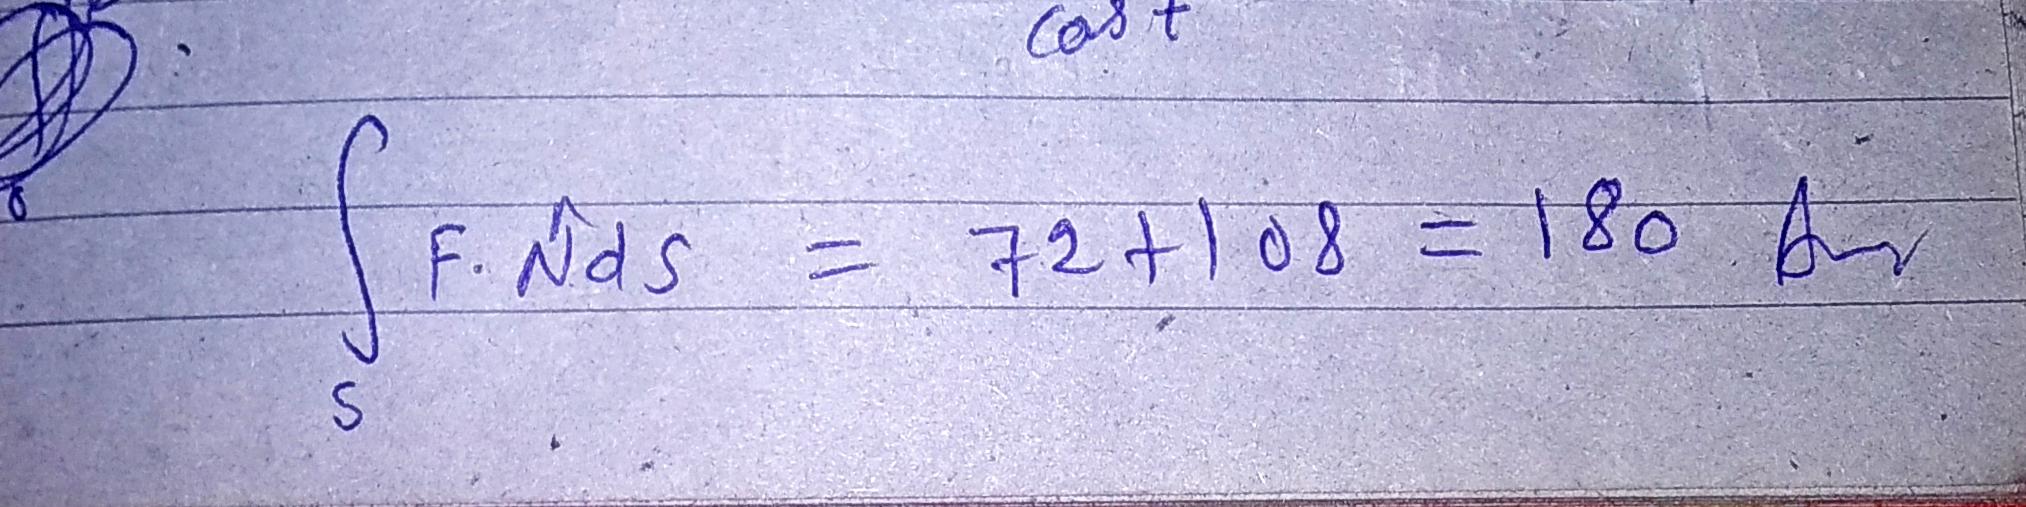 cost
∫ F. N̂ ds = 72 + 108 = 180 Ans
S